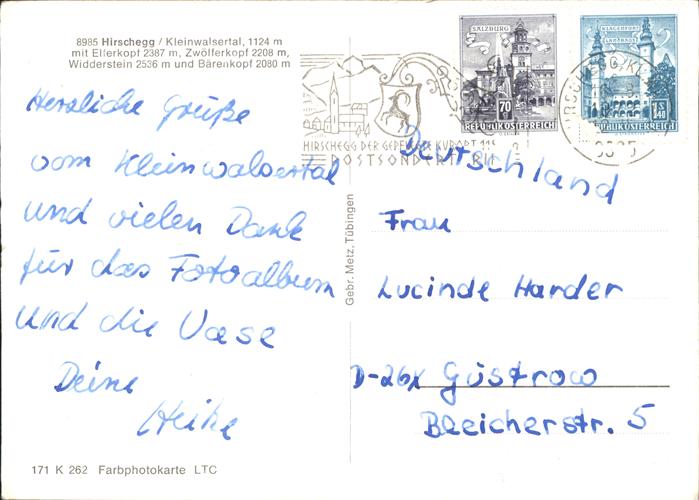 8985 Hirschegg / Kleinwalsertal, 1124 m
mit Ellerkopf 2387 m, Zwölferkopf 2208 m,
Widderstein 2536 m und Bärenkopf 2080 m
Herzliche Grüße
vom Kleinwalsertal
und vielen Dank
für das Fotoalbum
und die Vase
Deine
Heike
171 K 262 Farbphotokarte LTC
Gebr. Metz, Tübingen
SALZBURG
70
REPUBLIK ÖSTERREICH
KLAGENFURT
LANDHAUS
1 S 40
REPUBLIK ÖSTERREICH
HIRSCHEGG DER GEPFLEGTE KURORT
Deutschland
Frau
Lucinde Harder
Güstrow
Bleicherstr. 5